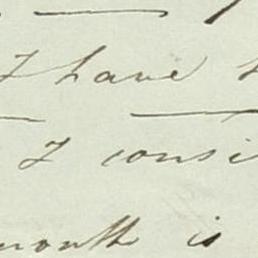 I have
I consi
month is